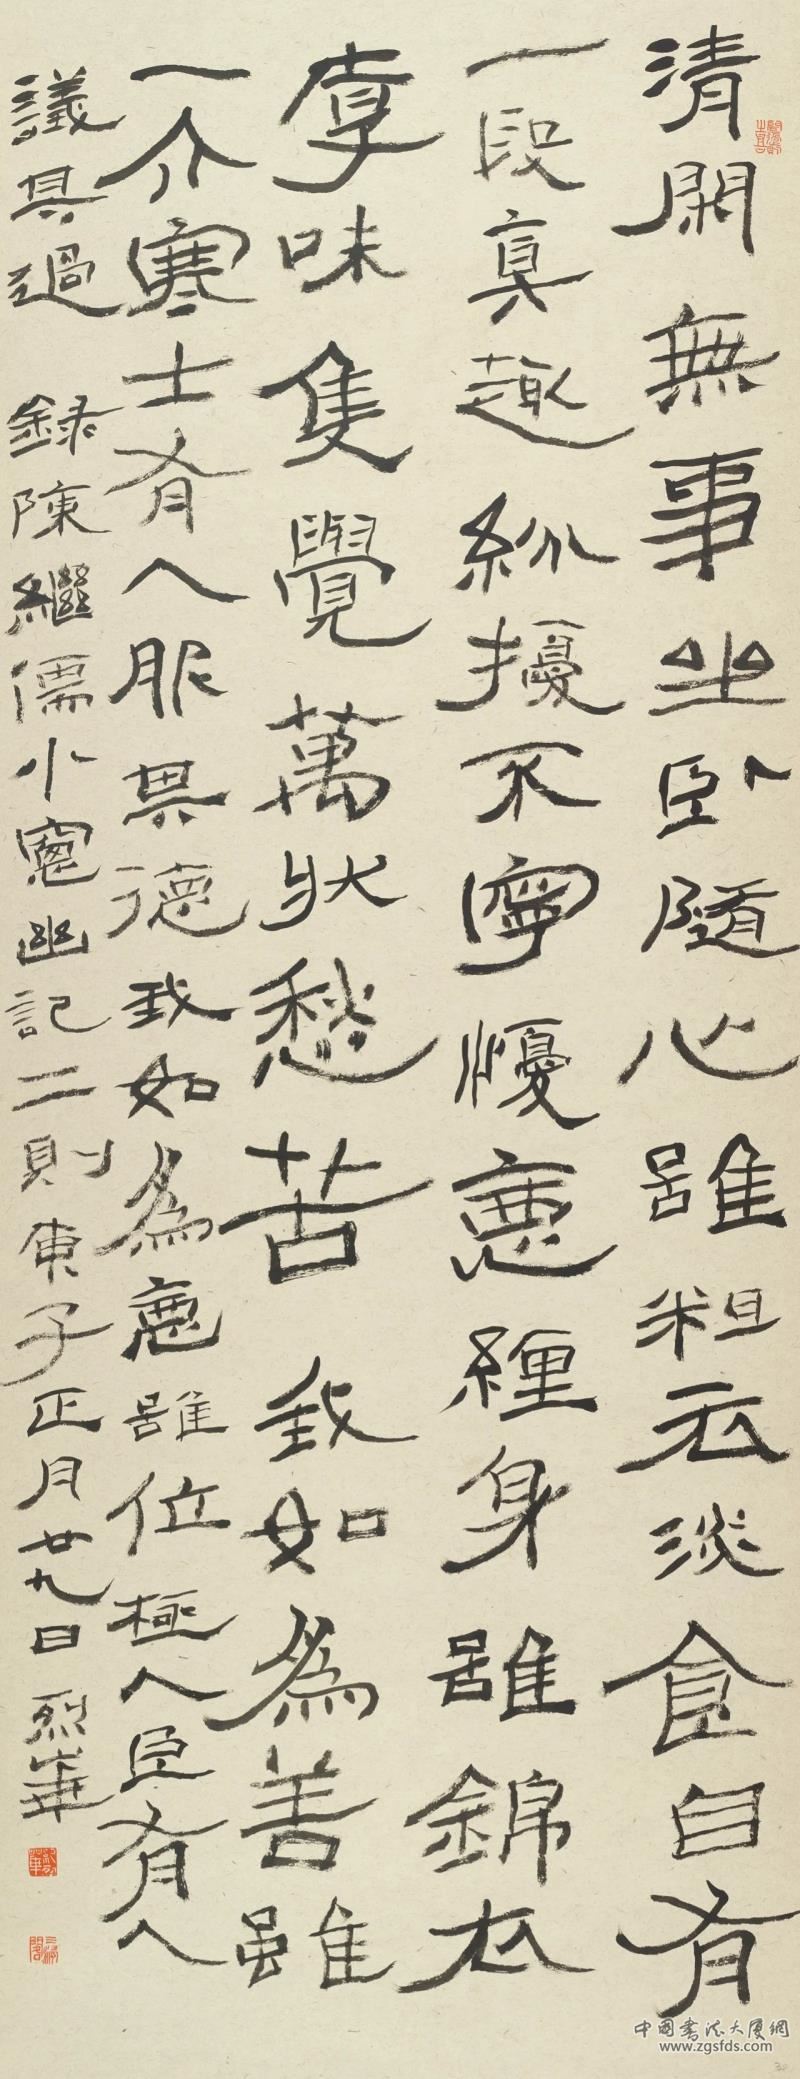 清閑無事坐卧隨心雖粗衣淡食自有
一段真趣紛擾不寧懮患纏身雖錦衣
厚味隻覺萬狀愁苦我如為善雖
一介寒士有人服其德我如為惡雖位極人臣有人
議其過 録陳繼儒小窗幽記二則庚子正月廿九日烈華
中國書法大廈網
www.zgsfds.com